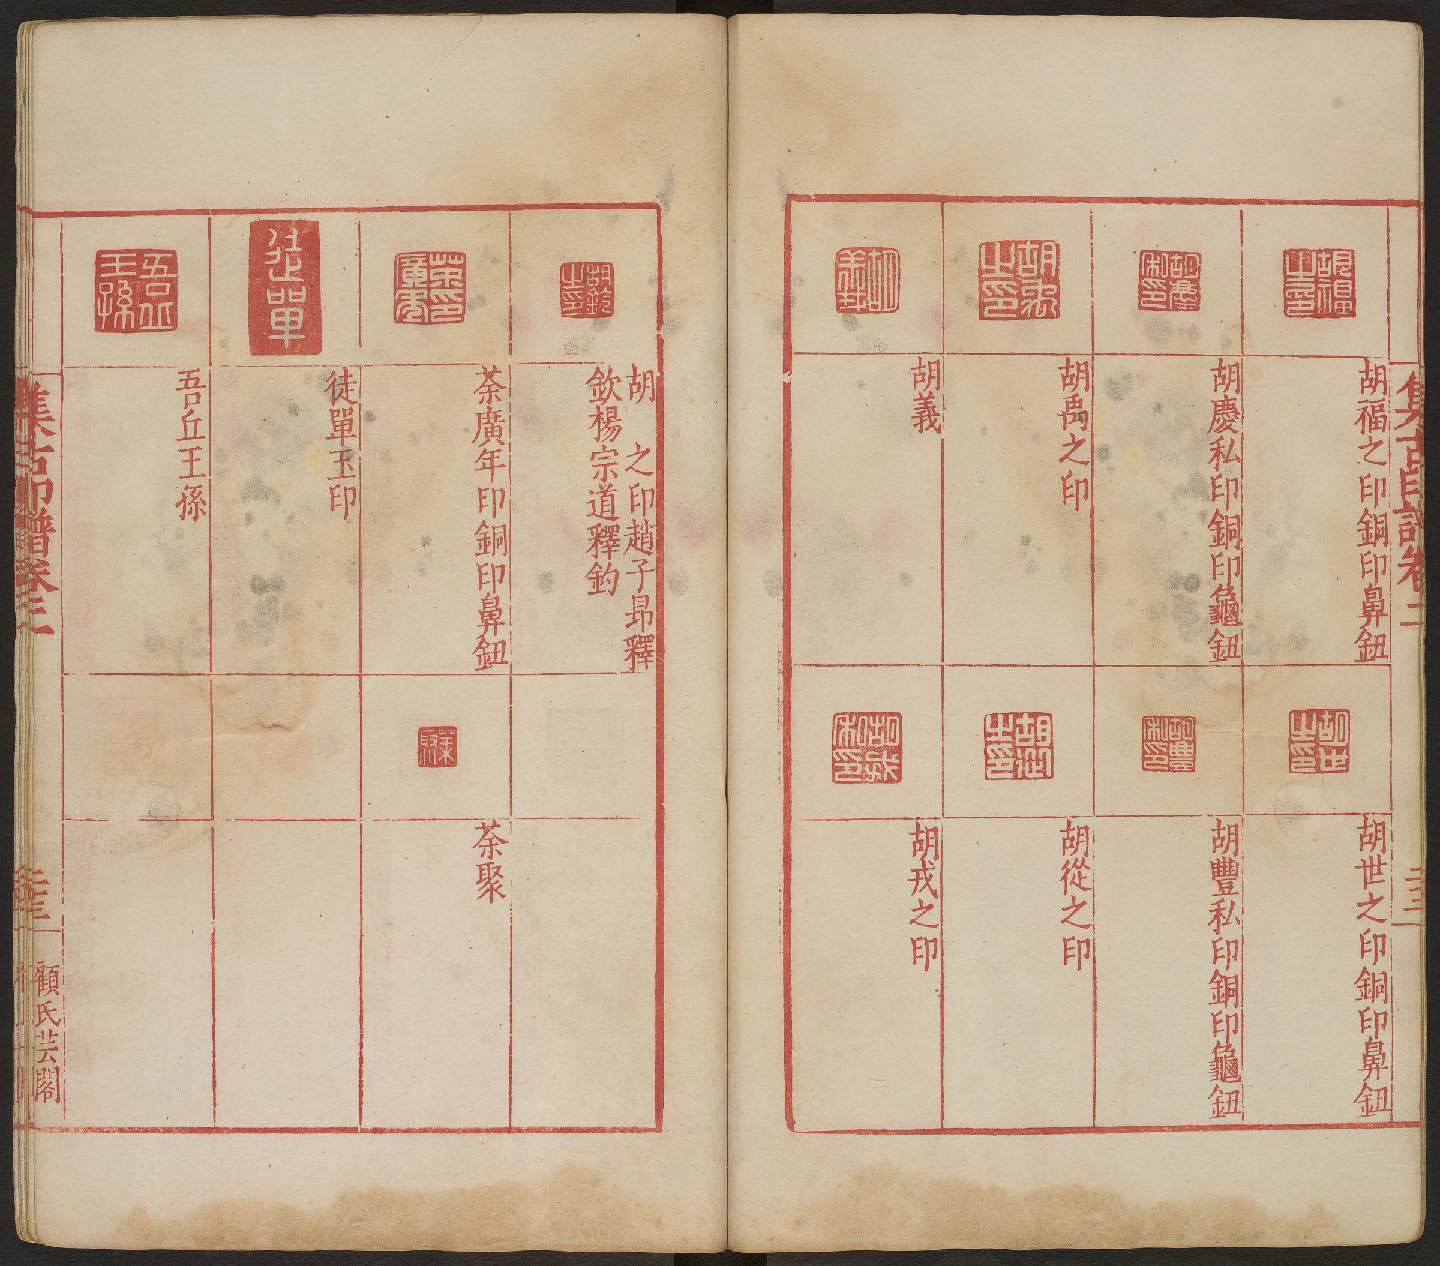 集古印譜卷三
胡福之印銅印鼻鈕
胡慶私印銅印龜鈕
胡禹之印
胡義
胡世之印銅印鼻鈕
胡豐私印銅印龜鈕
胡從之印
胡戎之印
胡　之印趙子昻釋
欽楊宗道釋鈞
荼廣年印銅印鼻鈕
徒單玉印
吾丘王孫
荼聚
集古印譜卷三
顧氏芸閣